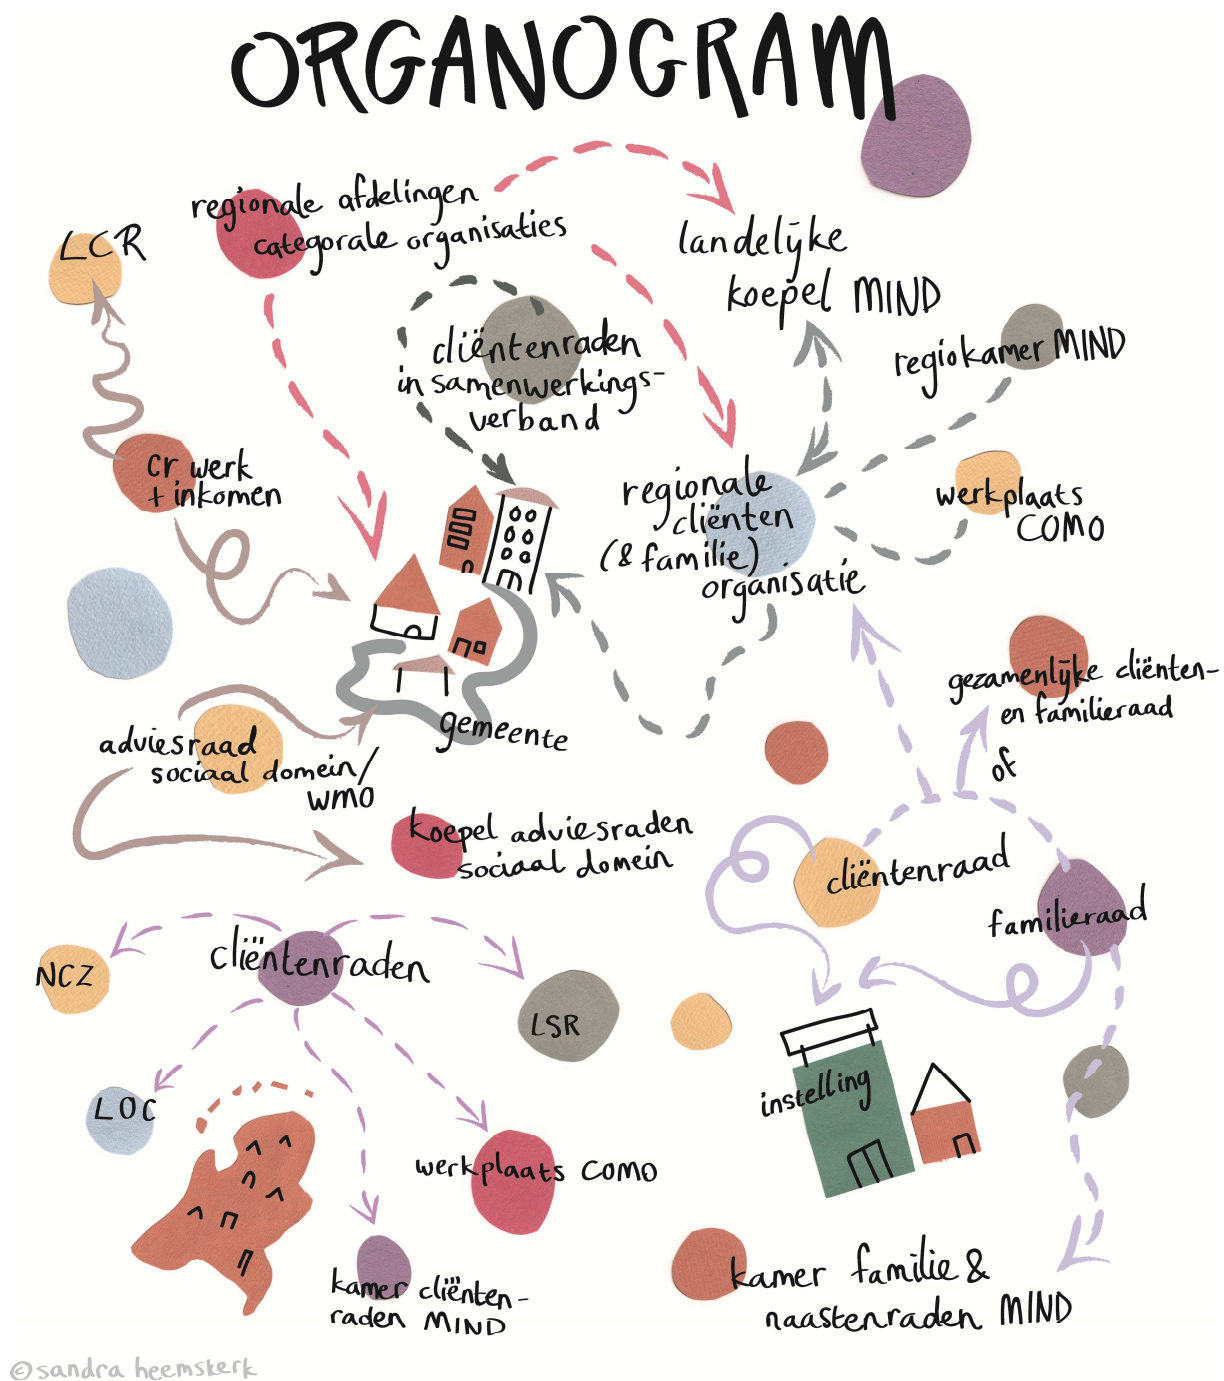 ORGANOGRAM
regionale afdelingen
categorale organisaties
LCR
landelijke
koepel MIND
cliëntenraden
in samenwerkings-
verband
regiokamer MIND
cr werk
+ inkomen
regionale
cliënten
(& familie)
organisatie
werkplaats
COMO
gezamenlijke cliënten-
en familieraad
of
gemeente
adviesraad
sociaal domein/
WMO
koepel adviesraden
sociaal domein
cliëntenraad
familieraad
cliëntenraden
NCZ
LSR
LOC
instelling
werkplaats COMO
kamer cliënten-
raden MIND
kamer familie &
naastenraden MIND
© sandra heemskerk